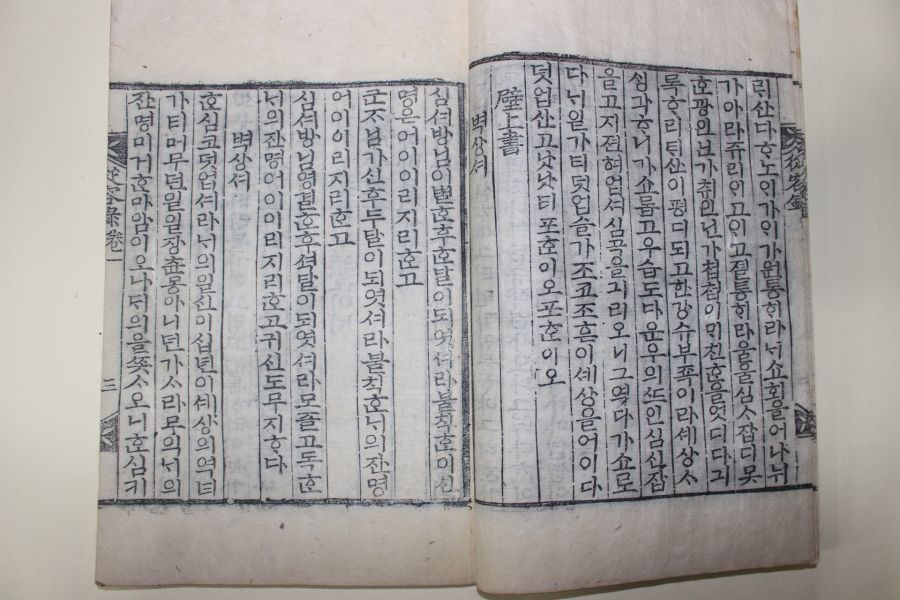 산다ᄒᆞ노이가이가원통히라너쇼회을어나뉘
가아라쥬리이고이고졀통히라울울심ᄉᆞ잡디못
ᄒᆞ광인 가취인넌가쳡쳡이미친ᄒᆞᆫ을엇디다긔
록ᄒᆞ리 산이평디되고한강슈부죡이라셰상ᄉᆞ
각ᄒᆞ니가쇼롭고우습도다운우의 인심심잡
을고지져혀업셔심곡을긔리오니그역다가쇼로
다너일가티덧업슬가조코조흔이셰상을어이다
덧업산고낫낫티포ᄒᆞᆫ이오포ᄒᆞᆫ이오
壁上書
벽상셔
심셔방님이별ᄒᆞᆫ후ᄒᆞᆫ달이되엿셔라불칙ᄒᆞᆫ이신
명은어이이리지리ᄒᆞᆫ고
군ᄌᆞ님가신후두달이되엿셔라불칙ᄒᆞᆫ너의잔명
어이이리지리ᄒᆞᆫ고
심셔방님영결ᄒᆞᆫ후셕달이되엿셔라모즐고독ᄒᆞᆫ
너의잔명어이이리지리ᄒᆞᆫ고귀신도무지ᄒᆞ다
벽상셔
ᄒᆞᆫ심코덧업셔라너의일신이십년이셰상의역틱
가티머무던일일장츈몽아니던가ᄉᆞ라모의너의
잔명미거ᄒᆞᆫ마암이오나듸의을ᄶᅩᆺᄉᆞ오니ᄒᆞᆫ심키
從容錄卷一
三